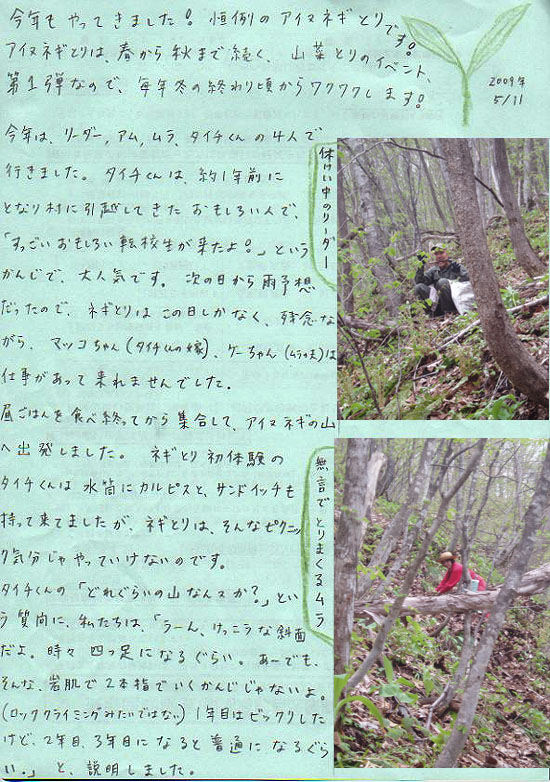 今年もやってきました! 恒例のアイヌネギとりです!
アイヌネギとりは、春から秋まで続く、山菜とりのイベント、
第1弾なので、毎年冬の終わり頃からワクワクします!
2009年
5/11
今年は、リーダー、アム、ムラ、タイチくんの4人で
行きました。タイチくんは、約1年前に
となり村に引越してきたおもしろい人で、
「すっごいおもしろい転校生が来たよ!」という
かんじで、大人気です。次の日から雨予想
だったので、ネギとりはこの日しかなく、残念な
がら、マッコちゃん(タイチくんの嫁)、ケーちゃん(ムラの夫)は
仕事があって来れませんでした。
昼ごはんを食べ終ってから集合して、アイヌネギの山
へ出発しました。 ネギとり初体験の
タイチくんは水筒にカルピスと、サンドイッチも
持って来てましたが、ネギとりは、そんなピクニッ
ク気分じゃやっていけないのです。
タイチくんの「どれぐらいの山なんスか?」とい
う質問に、私たちは、「うーん、けっこうな斜面
だよ。時々四つ足になるぐらい。あーでも、
そんな、岩肌で2本指でいくかんじじゃないよ。
(ロッククライミングみたいではない) 1年目はビックリした
けど、2年目、3年目になると普通になるぐら
い。」と、説明しました。
休けい中のリーダー
無言でとりまくるムラ